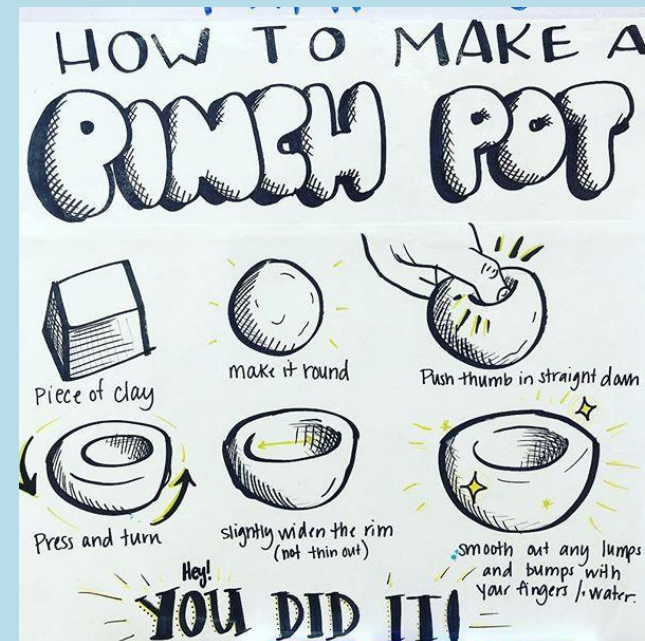 HOW TO MAKE A
PINCH POT
Piece of clay
make it round
Push thumb in straight down
Press and turn
slightly widen the rim
(not thin out)
smooth out any lumps
and bumps with
your fingers /. water.
Hey!
YOU DID IT!